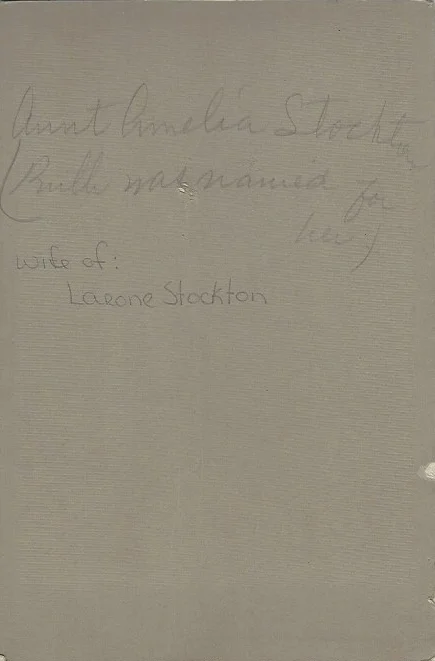 Aunt Amelia Stockton
(Ruth was named for
her.)
wife of:
Laeone Stockton